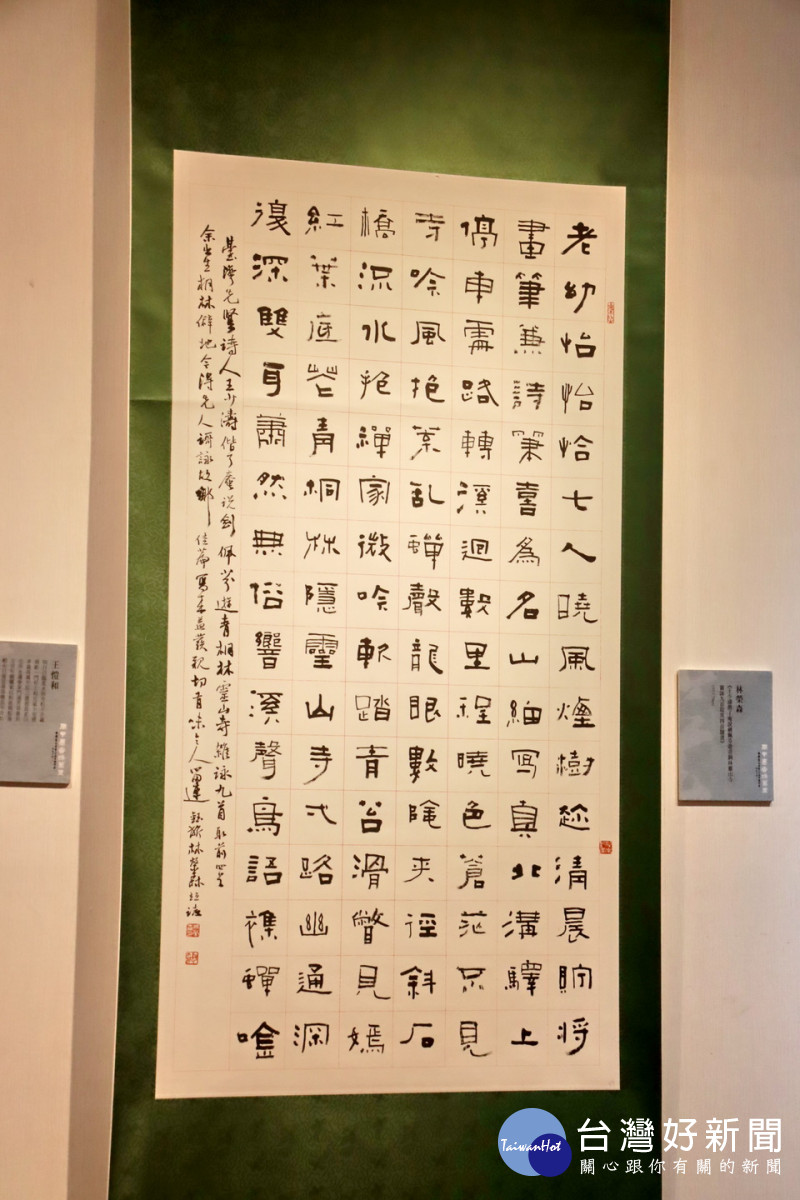 老幼怡怡恰七人曉風煙樹趂清晨貯將
畫筆兼詩筆喜為名山細寫真北溝驛上
停車處路轉溪迴數里程曉色蒼茫只見
寺吟風抱葉乱蟬聲龍眼數隂夾徑斜石
橋流水抱禪家微吟軟踏青苔滑瞥見嫣
紅葉底花青桐林隱靈山寺弌路幽通深
復深雙耳蕭然無俗響溪聲鳥語襍蟬唫
臺灣先賢詩人王少濤偕了庵說劍佩芩遊青桐林靈山寺雜詠九首取前四首
余出生桐林僻地今得先人謳詠故鄉佳篇寫來益覺親切有味 林榮森
林榮森
王愷和
TaiwanHot
台灣好新聞
關心跟你有關的新聞